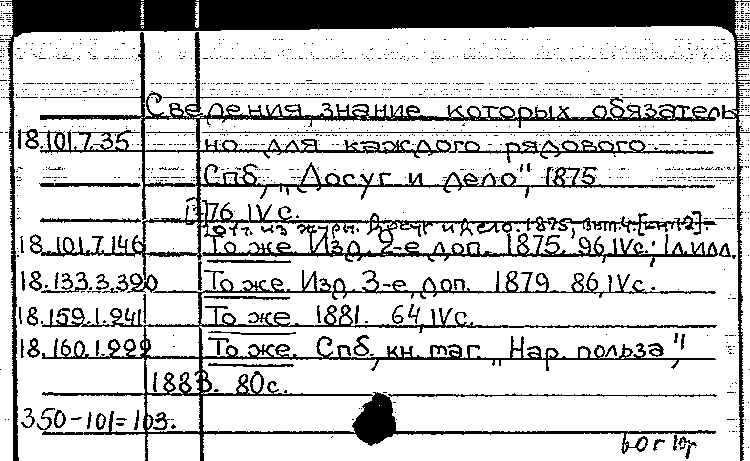 Сведения, знание которых обязатель
18.101.7.35 но для каждого рядового.
Спб, „Досуг и дело", 1875
76, IV с.
[Отт. из журн. Досуг и дело. 1875, вып. 4.
18.101.7.146 То же. Изд. 2-е доп. 1875. 96, IV с.; 1 л. илл.
18.133.3.390 То же. Изд. 3-е, доп. 1879. 86, IV с.
18.159.1.241 То же. 1881. 64, IV с.
18.160.1.222 То же. Спб, кн. маг. „Нар. польза",
1883. 80 с.
350-101=103.